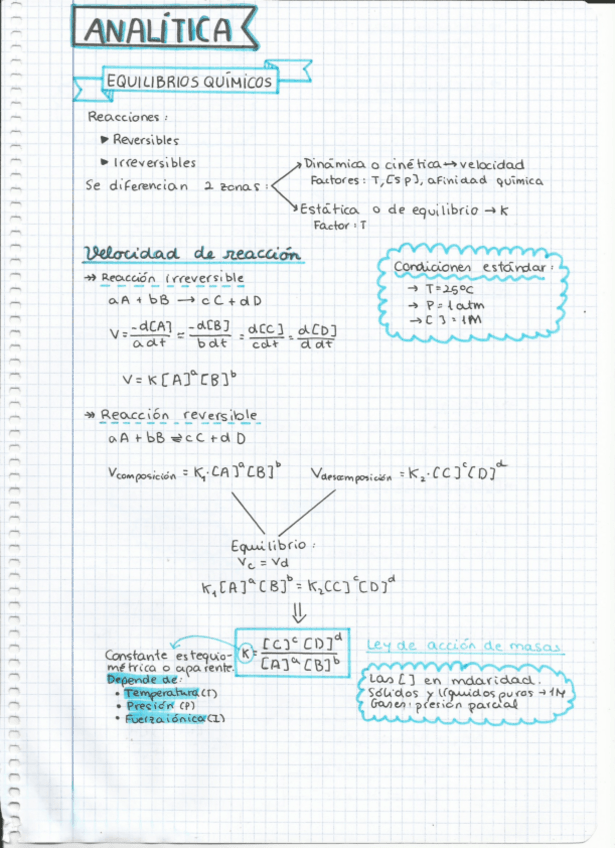 ANALÍTICA
EQUILIBRIOS QUÍMICOS
Reacciones:
▸ Reversibles
▸ Irreversibles
Se diferencian 2 zonas:
Dinámica o cinética → velocidad
Factores: T, [s p], afinidad química
Estática o de equilibrio → K
Factor: T
Velocidad de reacción
↠ Reacción irreversible
aA + bB → cC + dD
V = -d[A]/a dt = -d[B]/b dt = d[C]/cdt = d[D]/d dt
V = K [A]ᵃ [B]ᵇ
Condiciones estándar:
→ T = 25ºC
→ P = 1 atm
→ [ ] = 1M
↠ Reacción reversible
aA + bB ⇌ cC + dD
Vcomposición = K₁·[A]ᵃ[B]ᵇ Vdescomposición = K₂·[C]ᶜ[D]ᵈ
Equilibrio:
Vc = Vd
K₁[A]ᵃ[B]ᵇ = K₂[C]ᶜ[D]ᵈ
⇓
K = [C]ᶜ [D]ᵈ / [A]ᵃ [B]ᵇ
Constante estequio-
métrica o aparente.
Depende de:
• Temperatura (T)
• Presión (P)
• Fuerza iónica (I)
Ley de acción de masas
Las [ ] en molaridad.
Sólidos y líquidos puros → 1M
Gases: presión parcial